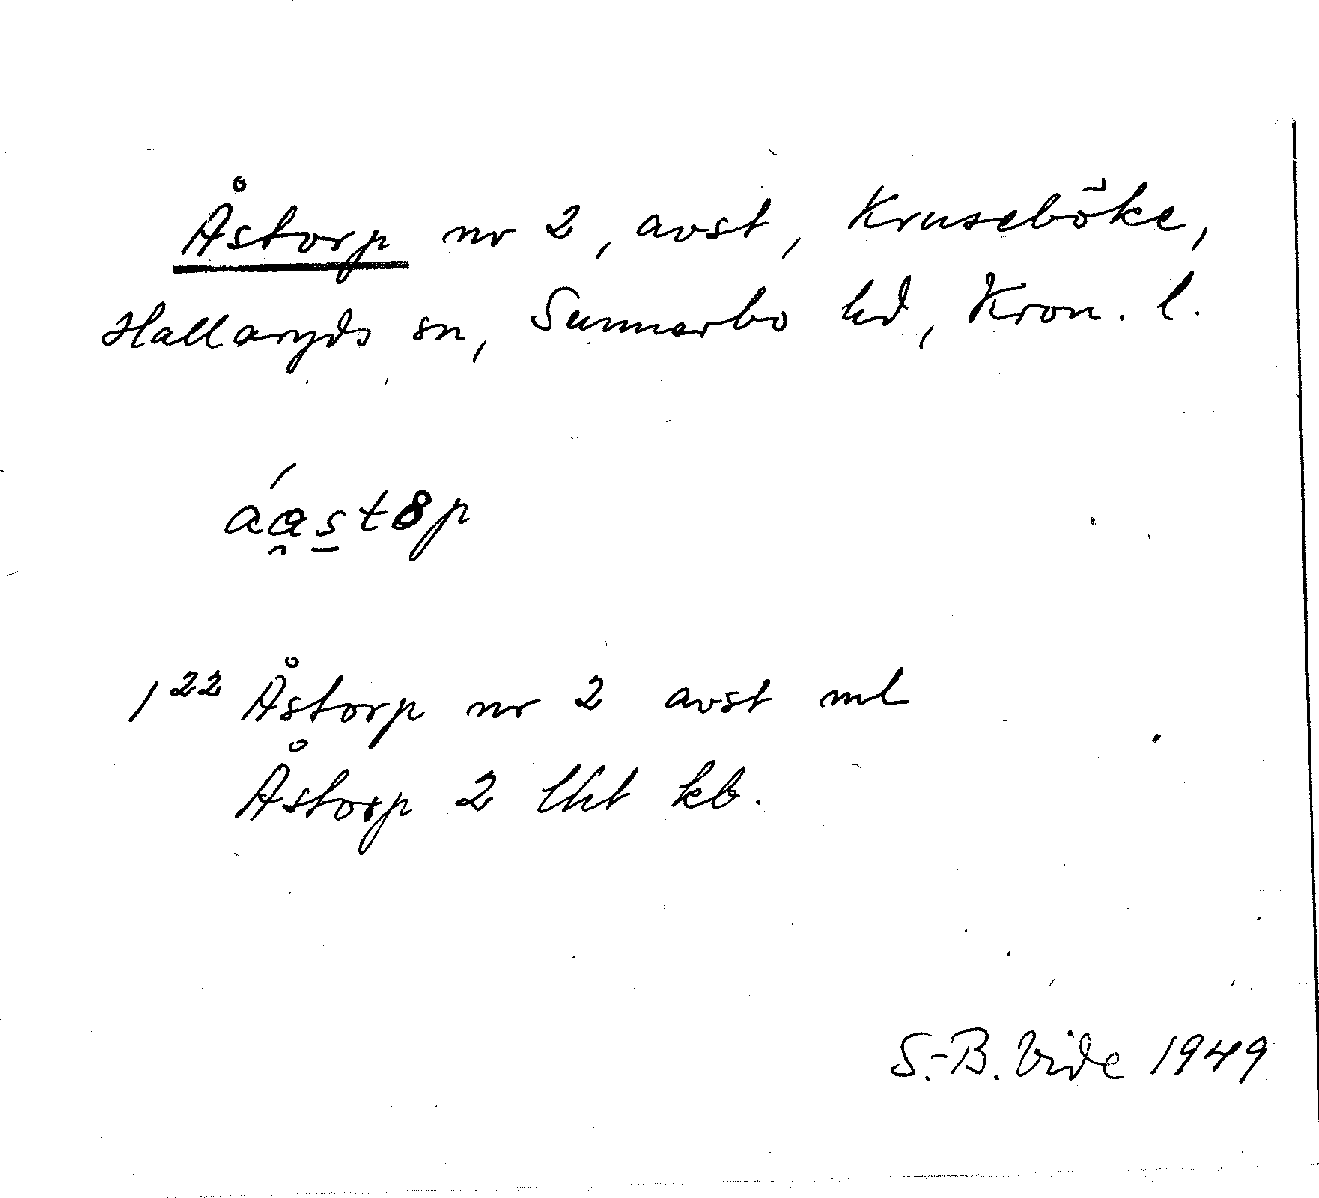 Åstorp nr 2, avst, Kruseböke,
Hallaryds sn, Sunnerbo hd, Kron. l.
áa̯s̠t8p
1²² Åstorp nr 2 avst ml
Åstorp 2 lht kb.
S.-B. Vide 1949